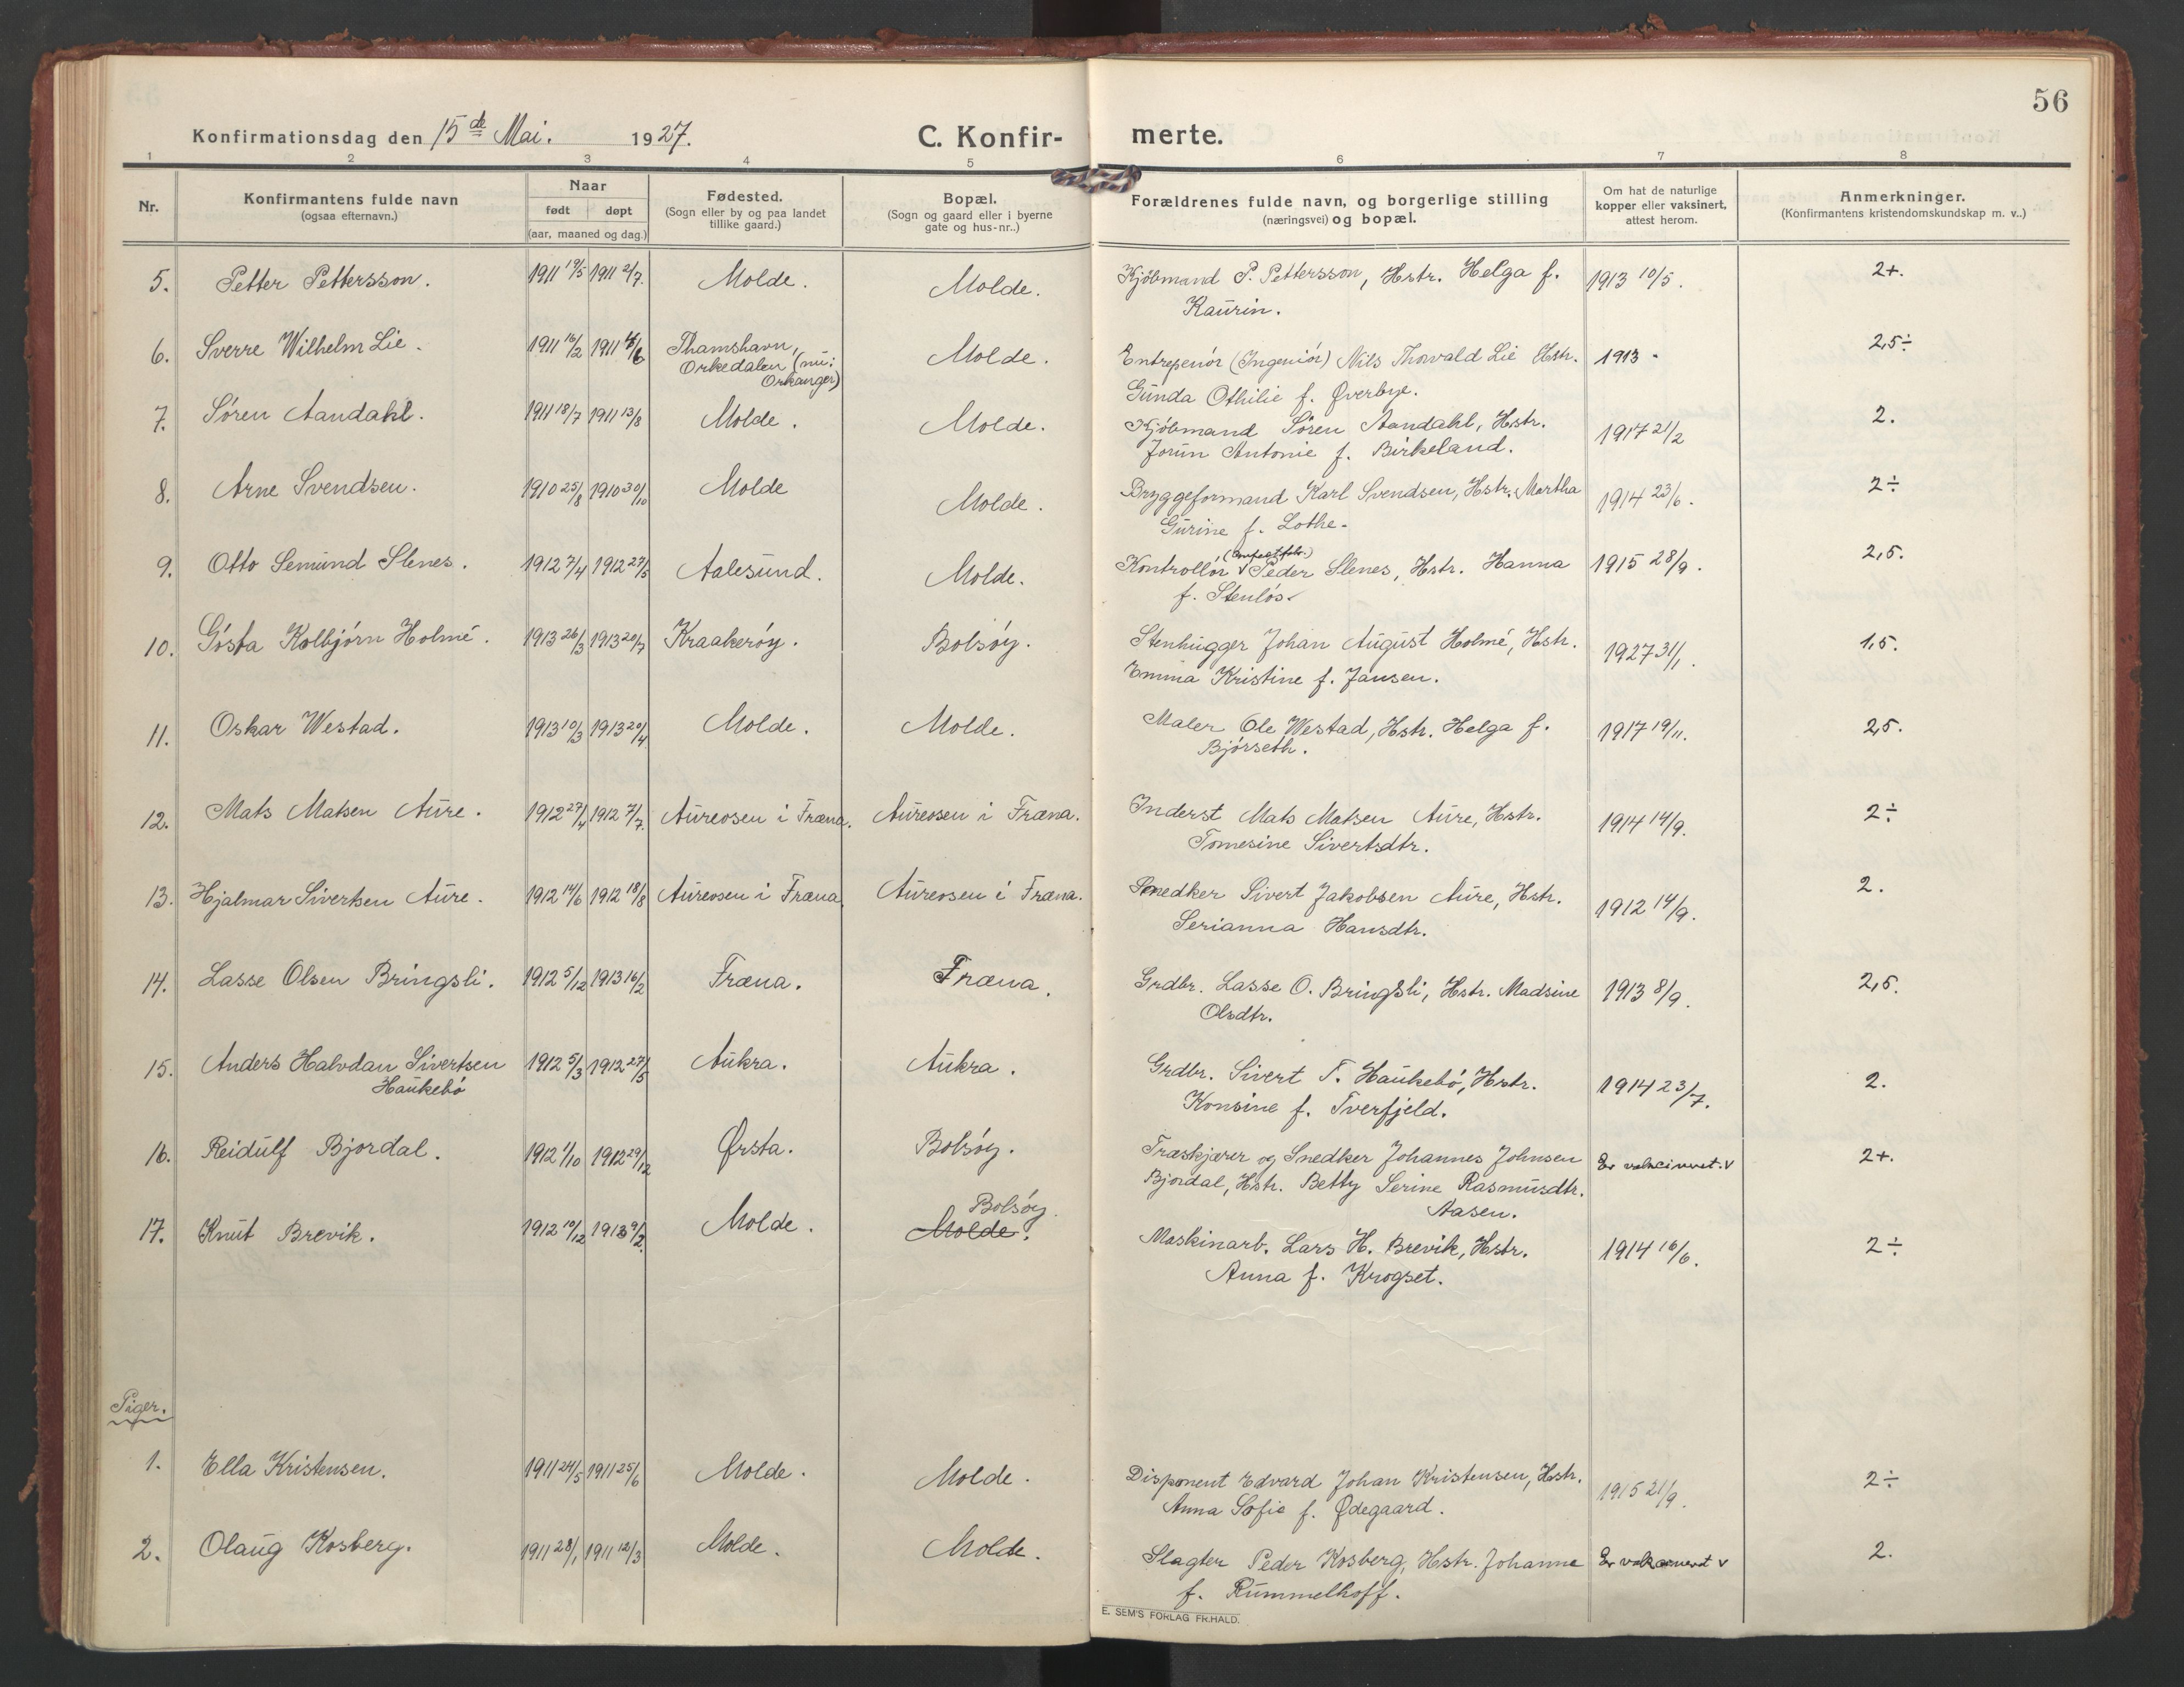 56
Konfirmationsdag den 15de Mai. 1927. C. Konfirmerte.
1 2 3 4 5 6 7 8
Nr.
Konfirmantens fulde navn
(ogsaa efternavn.)
Naar
født døpt
(aar, maaned og dag.)
Fødested.
(Sogn eller by og paa landet
tillike gaard.)
Bopæl.
(Sogn og gaard eller i byerne
gate og hus-nr..)
Forældrenes fulde navn, og borgerlige stilling
(næringsvei) og bopæl.
Om hat de naturlige
kopper eller vaksinert,
attest herom.
Anmerkninger.
(Konfirmantens kristendomskundskap m. v..)
5. Petter Pettersson. 1911 19/5 1911 2/7. Molde. Molde. Kjöbmand P. Pettersson, Hstr. Helga f. 1913 10/5. 2+.
Kaurin.
6. Sverre Wilhelm Lie. 1911 16/2 1911 /6 Thamshavn, Molde. Entrepenör (Ingeniör) Nils Thorvald Lie Hstr. 1913. 2,5÷
Orkedalen (nu:
Orkanger)
Gunda Othilie f. Øverbye.
7. Sören Aandahl. 1911 18/7 1911 13/8 Molde. Molde. Kjöbmand Sören Aandahl, Hstr. 1917 21/2 2.
Jorun Antonie f. Birkeland.
8. Arne Svendsen. 1910 25/8 1910 30/10 Molde Molde. Bryggeformand Karl Svendsen, Hstr. Martha 1914 23/6. 2÷
Gurine f. Lothe.
9. Otto Semund Slenes. 1912 7/4 1912 27/5 Aalesund. Molde. Kontrollör v Peder Slenes, Hstr. Hanna 1915 28/9. 2,5.
f. Stenlös.
10. Gösta Kolbjörn Holmé. 1913 26/3 1913 20/7 Kraakeröy. Bolsöy. Stenhugger Johan August Holmé, Hstr. 1927 31/1. 1,5.
Emma Kristine f. Jansen.
11. Oskar Westad. 1913 10/3 1913 20/4 Molde. Molde. Maler Ole Westad, Hstr. Helga f. 1917 19/11. 2,5.
Björseth.
12. Mats Matsen Aure. 1912 27/4 1912 7/7. Aureosen i Fræna. Aureosen i Fræna. Inderst Mats Matsen Aure, Hstr. 1914 14/9. 2÷
Tomesine Sivertsdtr.
13. Hjalmar Sivertsen Aure. 1912 14/6 1912 18/8 Aureosen i Fræna. Aureosen i Fræna. Snedker Sivert Jakobsen Aure, Hstr. 1912 14/9. 2.
Serianna Hansdtr.
14. Lasse Olsen Bringsli. 1912 5/12 1913 16/2 Fræna. Fræna. Grdbr. Lasse O. Bringsli, Hstr. Madsine 1913 8/9. 2,5.
Olsdtr.
15. Anders Halvdan Sivertsen 1912 5/3 1912 27/5 Aukra. Aukra. Grdbr. Sivert T. Haukebö, Hstr. 1914 23/7. 2.
Haukebö
Konsine f. Tverfjeld.
16. Reidulf Bjordal. 1912 1/10 1912 29/12 Ørsta. Bolsöy. Træskjærer og Snedker Johannes Johnsen Er vakcineret. v 2+.
Bjordal, Hstr. Betty Serine Rasmusdtr.
Aasen.
Bolsöy.
17. Knut Brevik. 1912 10/12 1913 9/2. Molde. Molde. Maskinarb. Lars H. Brevik, Hstr. 1914 16/6. 2÷
Anna f. Krogset.
Piger.
1. Ella Kristensen. 1911 24/5 1911 25/6 Molde. Molde. Disponent Edvard Johan Kristensen, Hstr. 1915 21/9. 2÷
Anna Sofie f. Ødegaard.
2. Olaug Kosberg. 1911 28/1 1911 12/3 Molde. Molde. Slagter Peder Kosberg, Hstr. Johanne Er vakcineret v 2.
f. Rummelhoff.
E. SEM'S FORLAG FR.HALD.